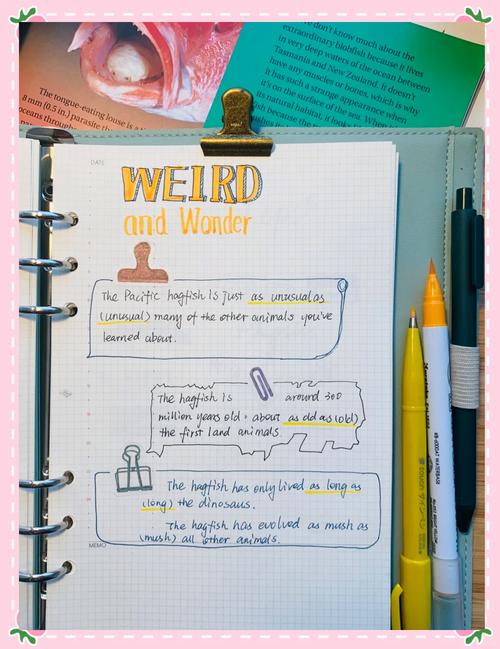 The tongue-eating louse is a
8 mm (0.5 in.) parasite th
oceans through
don't know much about the
extraordinary blobfish because it lives
in very deep waters of the ocean between
Tasmania and New Zealand. It doesn't
have any muscles or bones, which is why
it has such a strange appearance when
it's on the surface of the sea. When
its natural habitat, it looks
because the
DATE
WEIRD
and Wonder
The Pacific hagfish is just as unusual as
(unusual) many of the other animals you've
learned about.
The hagfish is around 300
million years old, about as old as (old)
the first land animals.
The hagfish has only lived as long as
(long) the dinosaus.
The hagfish has evolved as mush as
(mush) all other animals.
MEMO